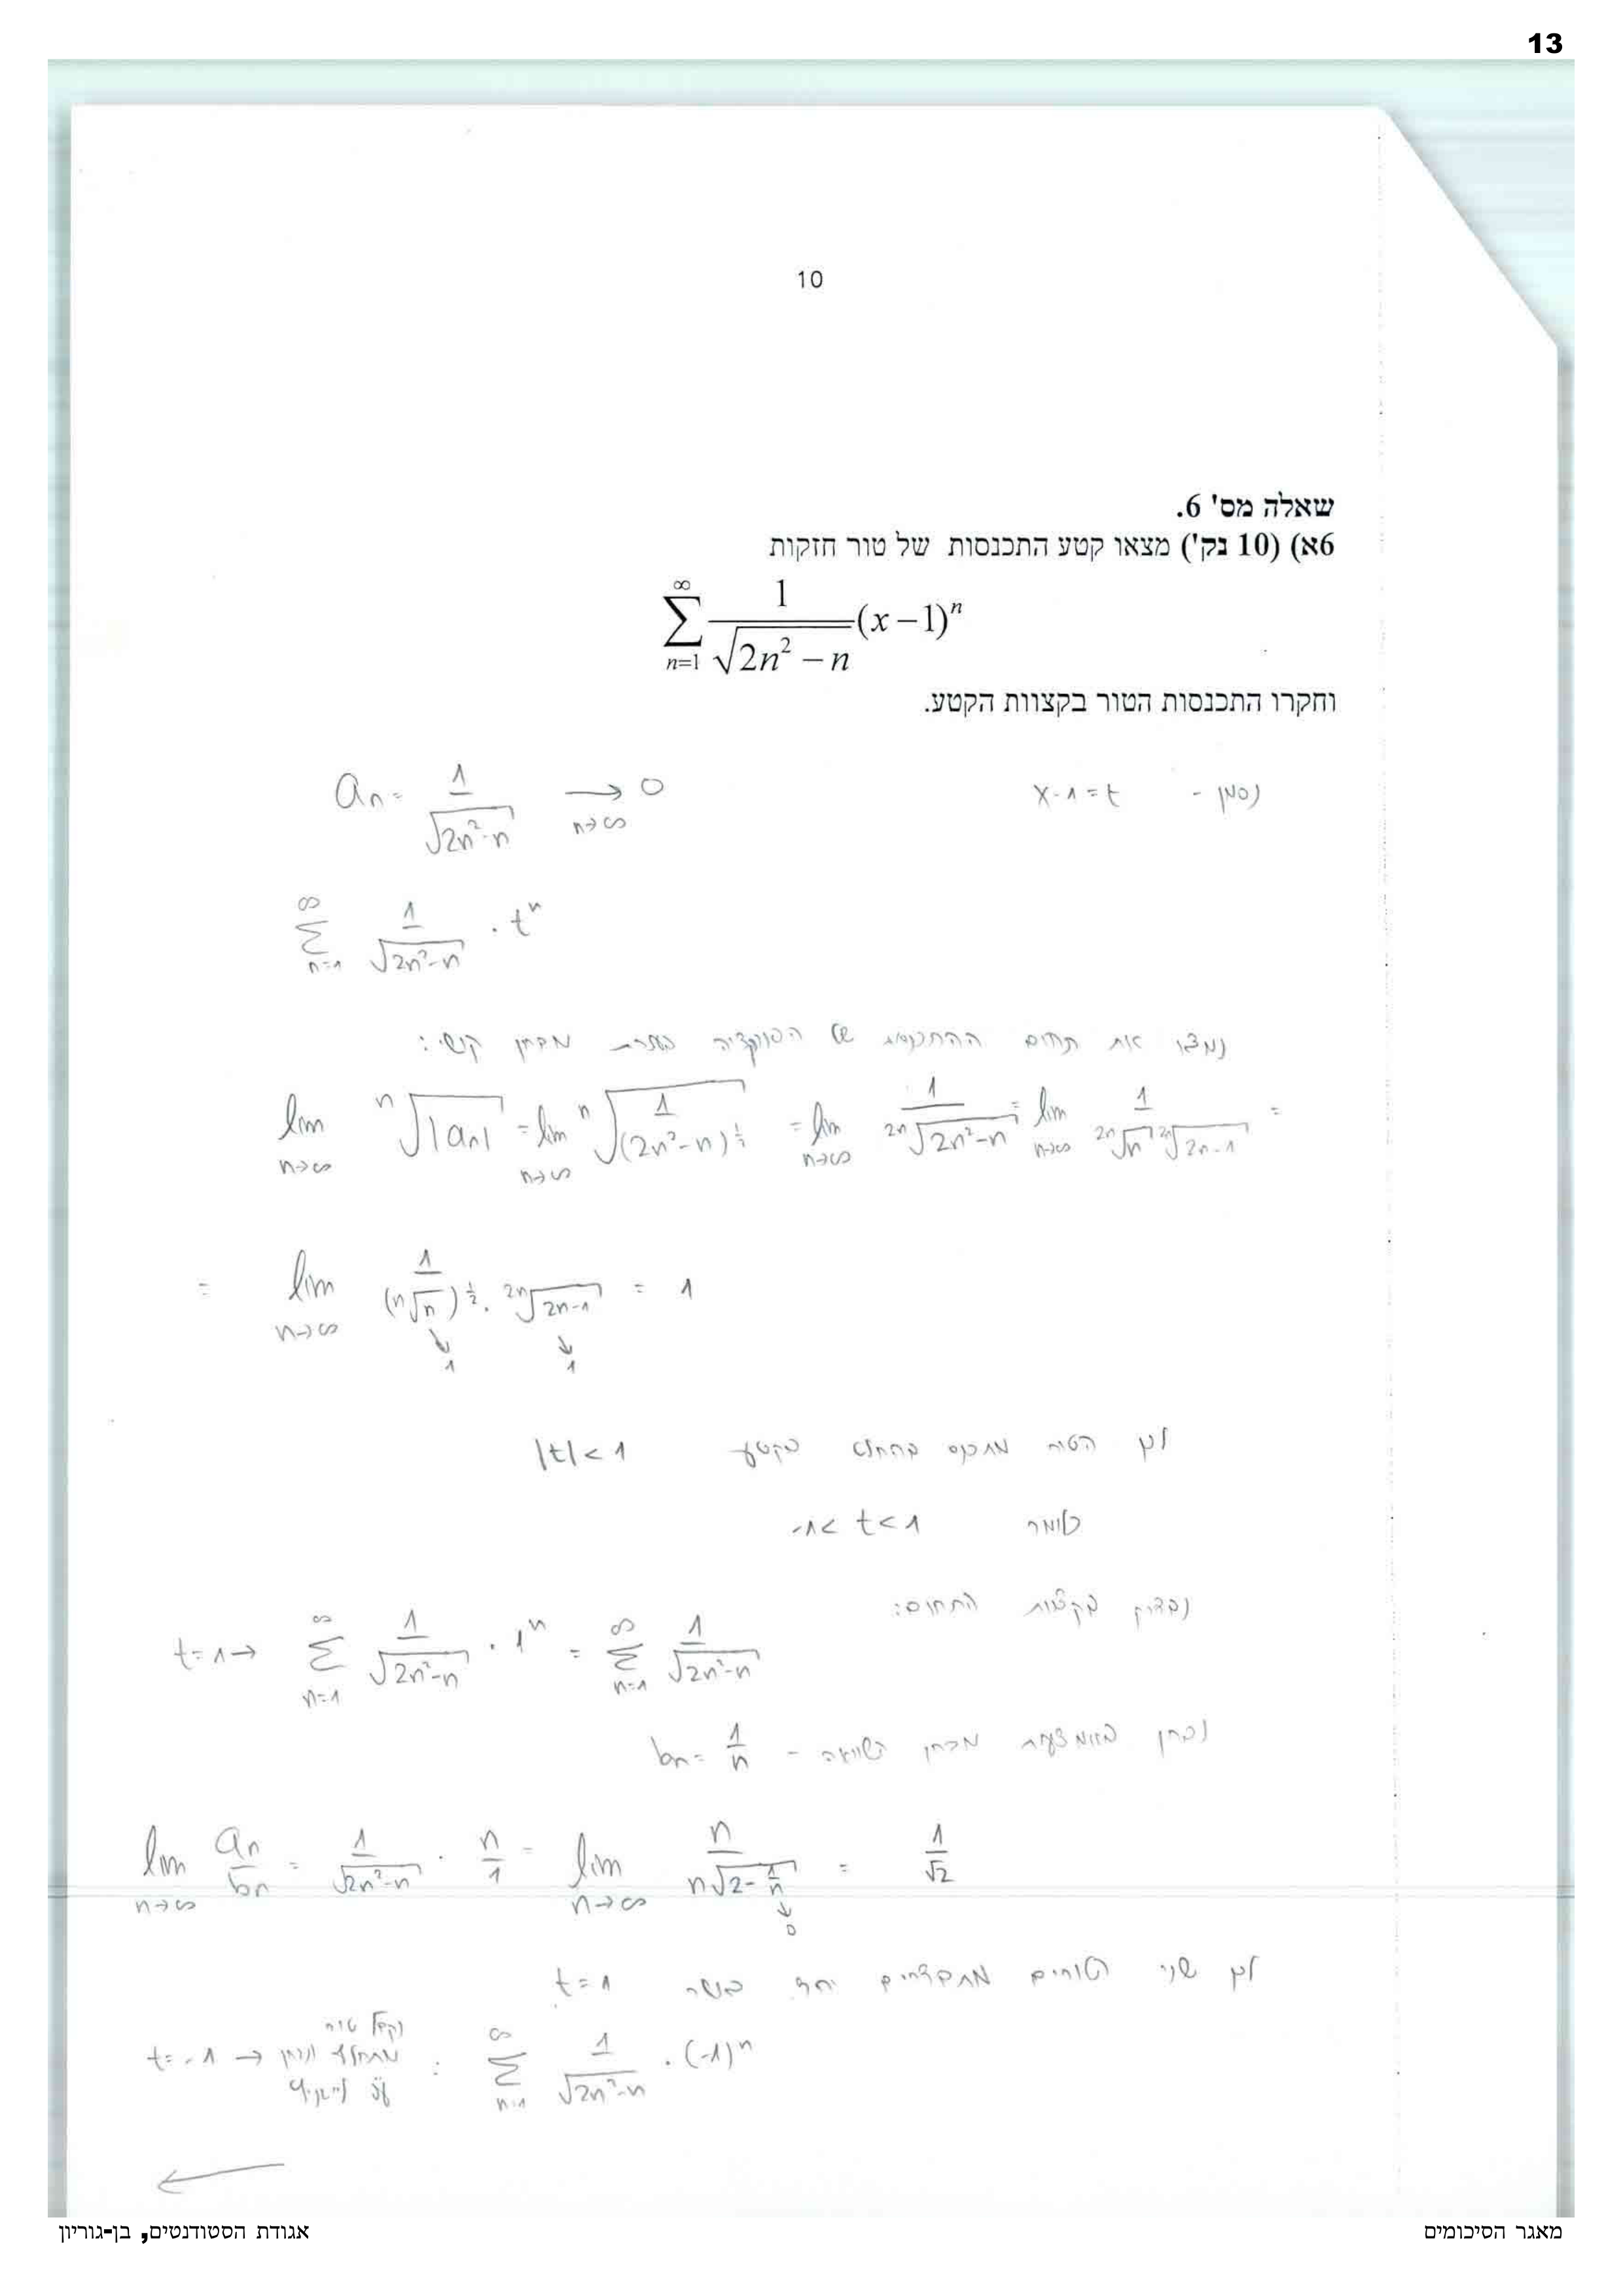 13
10
שאלה מס' 6.
6א) (10 נק') מצאו קטע התכנסות של טור חזקות
\sum_{n=1}^{\infty} \frac{1}{\sqrt{2n^2-n}}(x-1)^n
וחקרו התכנסות הטור בקצוות הקטע.
נסמן - x-1=t
a_n = \frac{1}{\sqrt{2n^2-n}} \xrightarrow[n→∞]{} 0
\sum_{n=1}^{\infty} \frac{1}{\sqrt{2n^2-n}} \cdot t^n
נמצא את תחום ההתכנסות של הפונקציה בעזרת מבחן קושי:
\lim_{n→∞} \sqrt[n]{|a_n|} = \lim_{n→∞} \sqrt[n]{\frac{1}{(2n^2-n)^{\frac{1}{2}}}} = \lim_{n→∞} \frac{1}{\sqrt[2n]{2n^2-n}} = \lim_{n→∞} \frac{1}{\sqrt[2n]{n} \sqrt[2n]{2n-1}} =
= \lim_{n→∞} \frac{1}{(\sqrt[n]{n})^{\frac{1}{2}} \cdot \sqrt[2n]{2n-1}} = 1
↓1 ↓1
לכן הטור מתכנס בהחלט בקטע |t|<1
כלומר -1<t<1
נבדוק בקצוות התחום:
t=1→ \sum_{n=1}^{\infty} \frac{1}{\sqrt{2n^2-n}} \cdot 1^n = \sum_{n=1}^{\infty} \frac{1}{\sqrt{2n^2-n}}
נבחן באמצעות מבחן השוואה - b_n = \frac{1}{n}
\lim_{n→∞} \frac{a_n}{b_n} = \frac{1}{\sqrt{2n^2-n}} \cdot \frac{n}{1} = \lim_{n→∞} \frac{n}{n\sqrt{2-\frac{1}{n}}} = \frac{1}{\sqrt{2}}
↓0
לכן שני הטורים מתבדרים יחד כאשר t=1
t=-1 → נקבל טור מתחלף ונבחן ע"פ לייבניץ : \sum_{n=1}^{\infty} \frac{1}{\sqrt{2n^2-n}} \cdot (-1)^n
←
מאגר הסיכומים
אגודת הסטודנטים, בן-גוריון